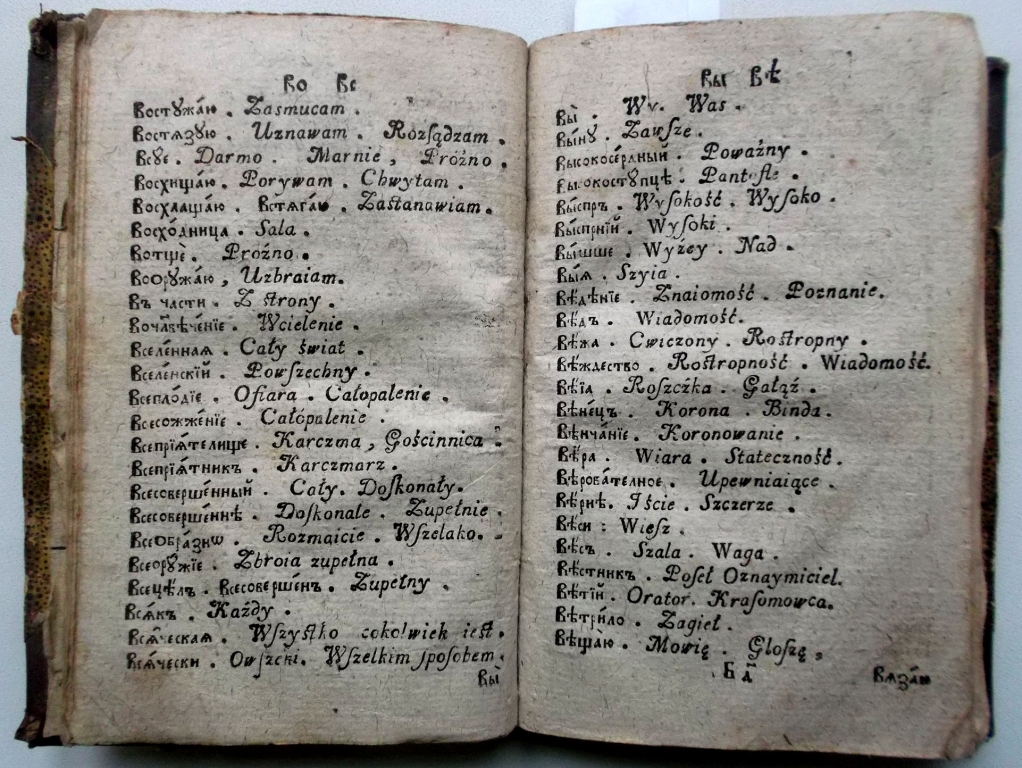 Во Вс
Востꙋжа́ю . Zasmucam .
Востѧзꙋю . Uznawam . Rozſądzam .
Всꙋе . Darmo . Marnie , Prożno .
Восхищаю . Porywam . Chwytam .
Восхлащаю . Встѧгаю . Zastanawiam .
Восхо́дница . Sala .
Вотщѐ . Prożno .
Воорꙋжа́ю , Uzbraiam.
Въ части . Z strony .
Вочл҃вѣче́нїе . Wcielenie .
Вселе́ннаѧ . Cały świat .
Вселе́нскїй . Powſzechny .
Всепло́дїе . Ofiara . Całopalenie .
Всесожже́нїе . Całópalenie .
Всепрїѧ́телище . Karczma , Gościnnica .
Всепрїѧ́тникъ . Karczmarz .
Всесоверше́нный . Cały . Doſkonały .
Всесоверше́ннѣ . Doſkonale . Zupełnie .
Всеѻбра́знѡ . Rozmaicie . Wſzelako .
Всеорꙋ́жїе . Zbroia zupełna .
Всецѣ́лъ . Всесоверше́н . Zupełny .
Всѧ́къ . Każdy .
Всѧ́ческаѧ . Wſzyſtko cokolwiek iest .
Всѧ́чески . Owſzeki . Wſzelkim ſpoſobem .
Вы̀
Вы Вѣ
Вы̀ . Wy . Was .
Вы́нꙋ . Zawſze .
Высокосе́рдный . Poważny .
Высокостꙋпцѣ̀ . Pantofle .
Вы́спръ . Wyſokość . Wyſoko .
Вы́спрнїй . Wyſoki .
Вы́шше . Wyżey . Nad .
Вы́ѧ . Szyia .
Вѣ́дѣнїе . Znaiomość . Poznanie .
Вѣ́дъ . Wiadomość.
Вѣ́жа . Cwiczony . Rostropny .
Вѣ́ждество . Rostropność . Wiadomość .
Вѣ́їа . Roszczka . Gałąź .
Вѣне́цъ . Korona . Binda .
Вѣнча́нїе . Koronowanie .
Вѣ́ра . Wiara . Stateczność .
Вѣ́рователное . Upewniaiące .
Вѣ́рнѣ . Iście . Szczerze .
Вѣ́си : Wiesz .
Вѣ́съ . Szala . Waga .
Вѣ́стникъ . Poſeł Oznaymiciel.
Вѣ́тїй . Orator . Kraſomowca .
Вѣ́три́ло . Zagiel .
Вѣ́щаю . Mowię . Głoſzę ,
Б д҃
Вѧза́ю